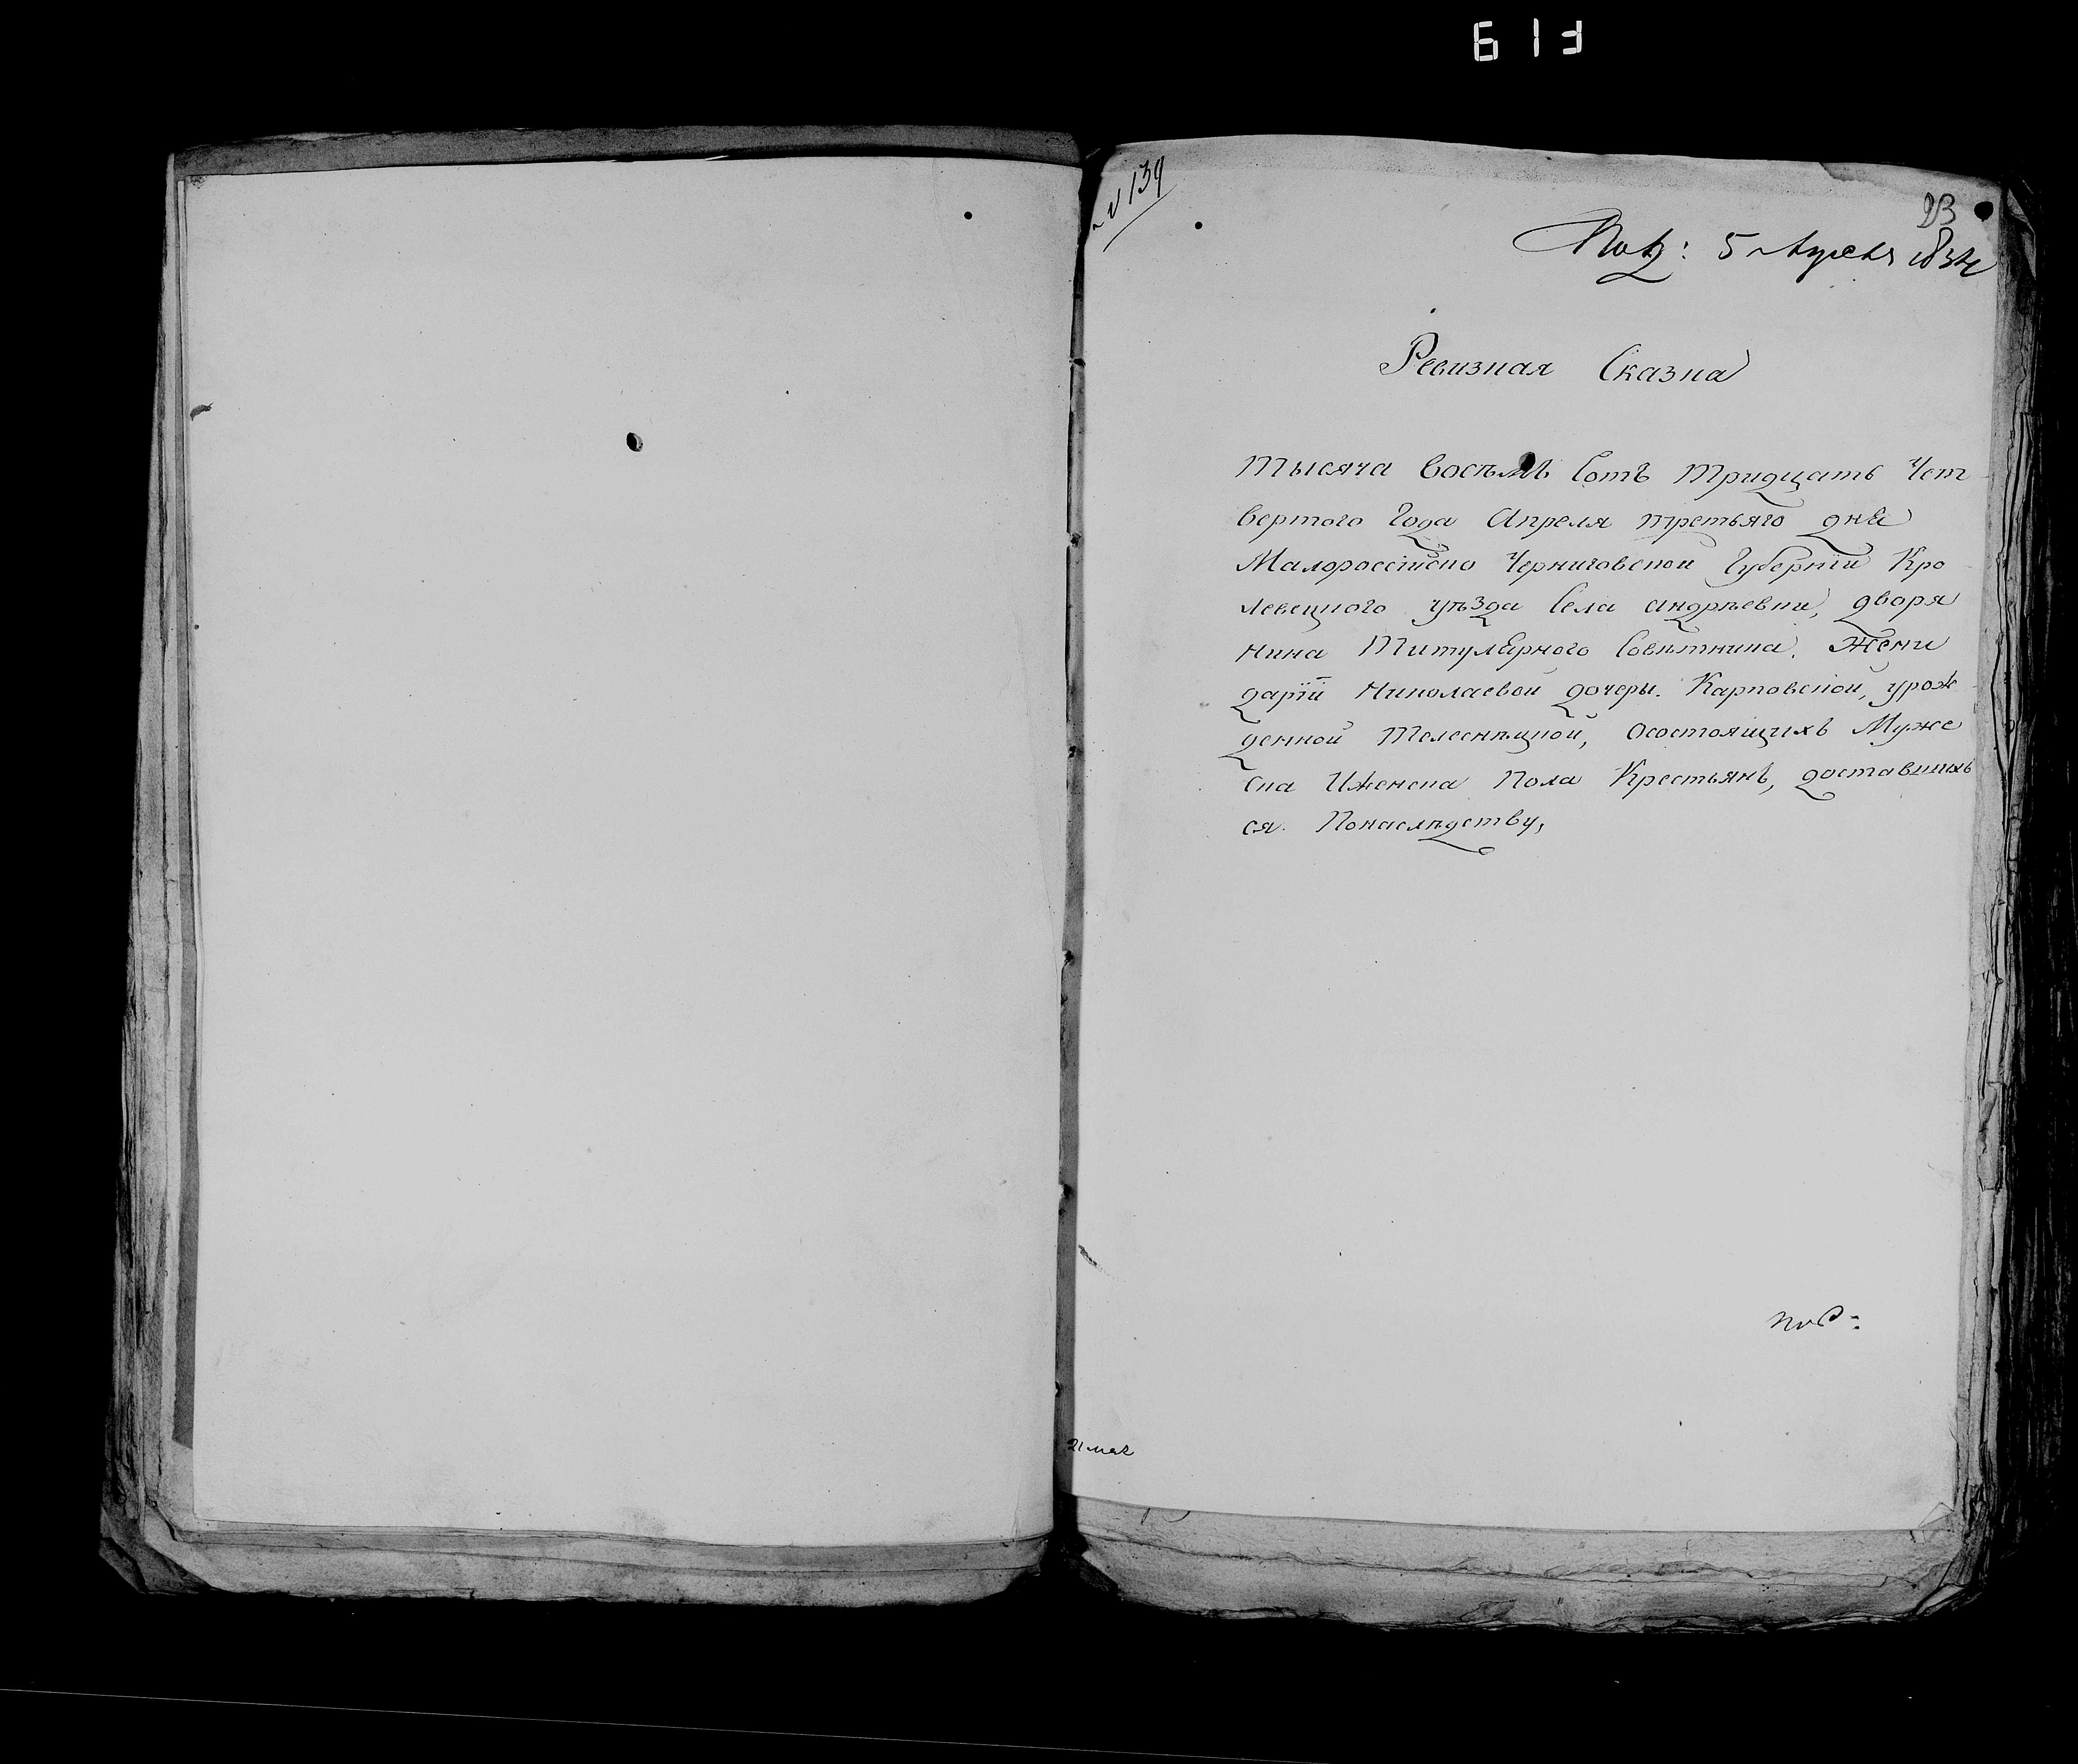 № 139
23
Под: 5 Апреля 1834
Ревизная Сказка
Тысяча Восѣмъ Сотъ Тридцать Чет
вертого Года Апреля третьяго дня
Малороссійско Черниговской Губерніи Кро
левецкого уѣзда Села андрѣевки, дворя
нина Титулярного Совѣтника. Жени
даріи Николаевой дочеры. Карповской, урож
денной Телесницкой, Осостоящихъ Муже
ска Иженска Пола Крестьянъ, доставшихъ
ся. Понаслѣдству,